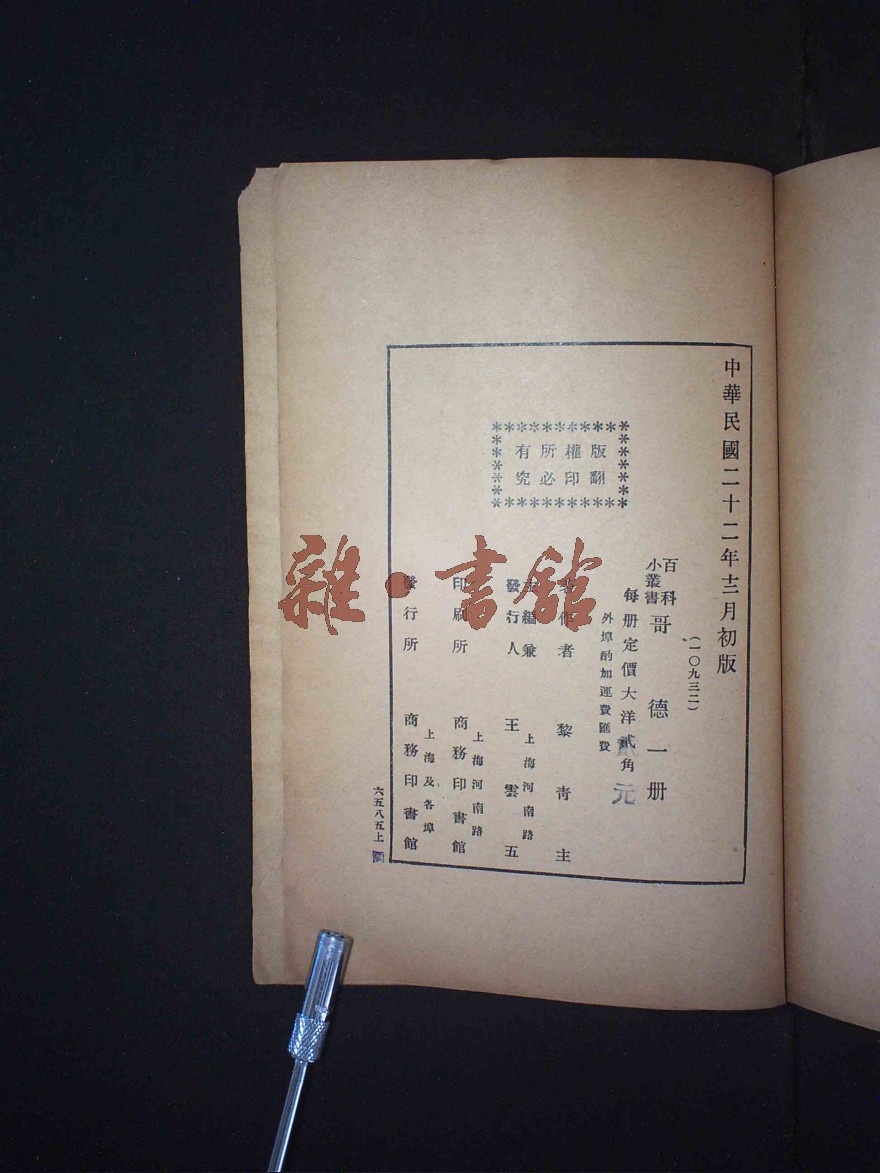 中華民國二十二年十二月初版
(一〇九三二)
百科
小叢書
哥德一册
每册定價大洋貳角
元
外埠酌加運費匯費
版權所有
翻印必究
著作者 黎青主
主編兼
發行人 王雲五
上海河南路
印刷所 商務印書館
上海河南路
發行所 商務印書館
上海及各埠
六五八五上
雜·書館